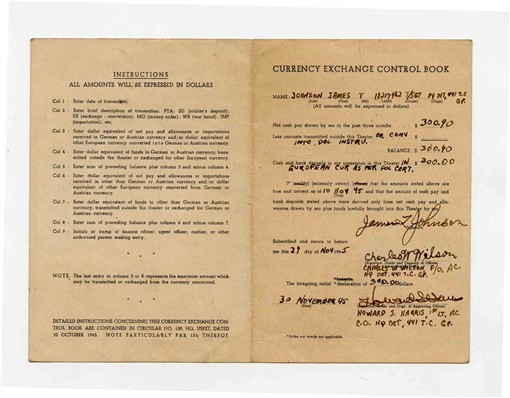 INSTRUCTIONS
ALL AMOUNTS WILL BE EXPRESSED IN DOLLARS
Col 1 - Enter date of transaction.
Col 2 - Enter brief description of transaction: PTA; SD (soldier's deposit);
EX (exchange - conversion), MO (money order), WB (war bond), IMP
(importation), etc.
Col 3 - Enter dollar equivalent of net pay and allowances or importations
received in German or Austrian currency and/or dollar equivalent of
other European currency converted into German or Austrian currency.
Col 4 - Enter dollar equivalent of funds in German or Austrian currency, transmitted
outside the theater or exchanged for other European currency.
Col 5 - Enter sum of preceding balance plus column 3 and minus column 4.
Col 6 - Enter dollar equivalent of net pay and allowances or importations
received in other than German or Austrian currency and/or dollar
equivalent of other European currency converted from German or
Austrian currency.
Col 7 - Enter dollar equivalent of funds in other than German or Austrian
currency, transmitted outside the theater or exchanged for German or
Austrian currency.
Col 8 - Enter sum of preceding balance plus column 6 and minus column 7.
Col 9 - Initials or stamp of finance officer, agent officer, cashier, or other
authorized person making entry.
* * *
NOTE. The last entry in column 5 or 8 represents the maximum amount which
may be transmitted or exchanged from the currency concerned.
* * *
DETAILED INSTRUCTIONS CONCERNING THIS CURRENCY EXCHANGE CONTROL
BOOK ARE CONTAINED IN CIRCULAR NO. 139, HQ, USFET, DATED
10 OCTOBER 1945. NOTE PARTICULARLY PAR 13L THEREOF.
CURRENCY EXCHANGE CONTROL BOOK
NAME: JOHNSON JAMES T T/SGT 441 T.C. GP.
(Last) (First) (MI) (ASN) (Grade) (Orgn)
(All amounts will be expressed in dollars)
Net cash pay drawn by me in the past three months $ 300.90
Less amounts transmitted outside this Theater OR CONV
INTO DOL INSTRU. $
BALANCE $ 300.90
Cash and bank deposits in my possession in this Theater IN $ 300.00
EUROPEAN CUR AS PER DOL CERT.
I (solemnly swear) that the amounts stated above are
true and correct as of 10 NOV 45 and that the amount of cash pay and
bank deposits stated above were derived only from net cash pay and allowances
drawn by me plus funds lawfully brought into this Theater by me.
James T Johnson
Subscribed and sworn to before
me this 29 day of NOV 1945
Charles W Wilson
CHARLES W WILSON F/O, AC
HQ DET, 441 T.C. GP.
The foregoing initial * declaration of 300.00 dollars
30 NOVEMBER 45
(Date)
HOWARD S. HARRIS, 1st LT, AC
C.O. HQ DET, 441 T.C. GP.
*Strike out words not applicable.